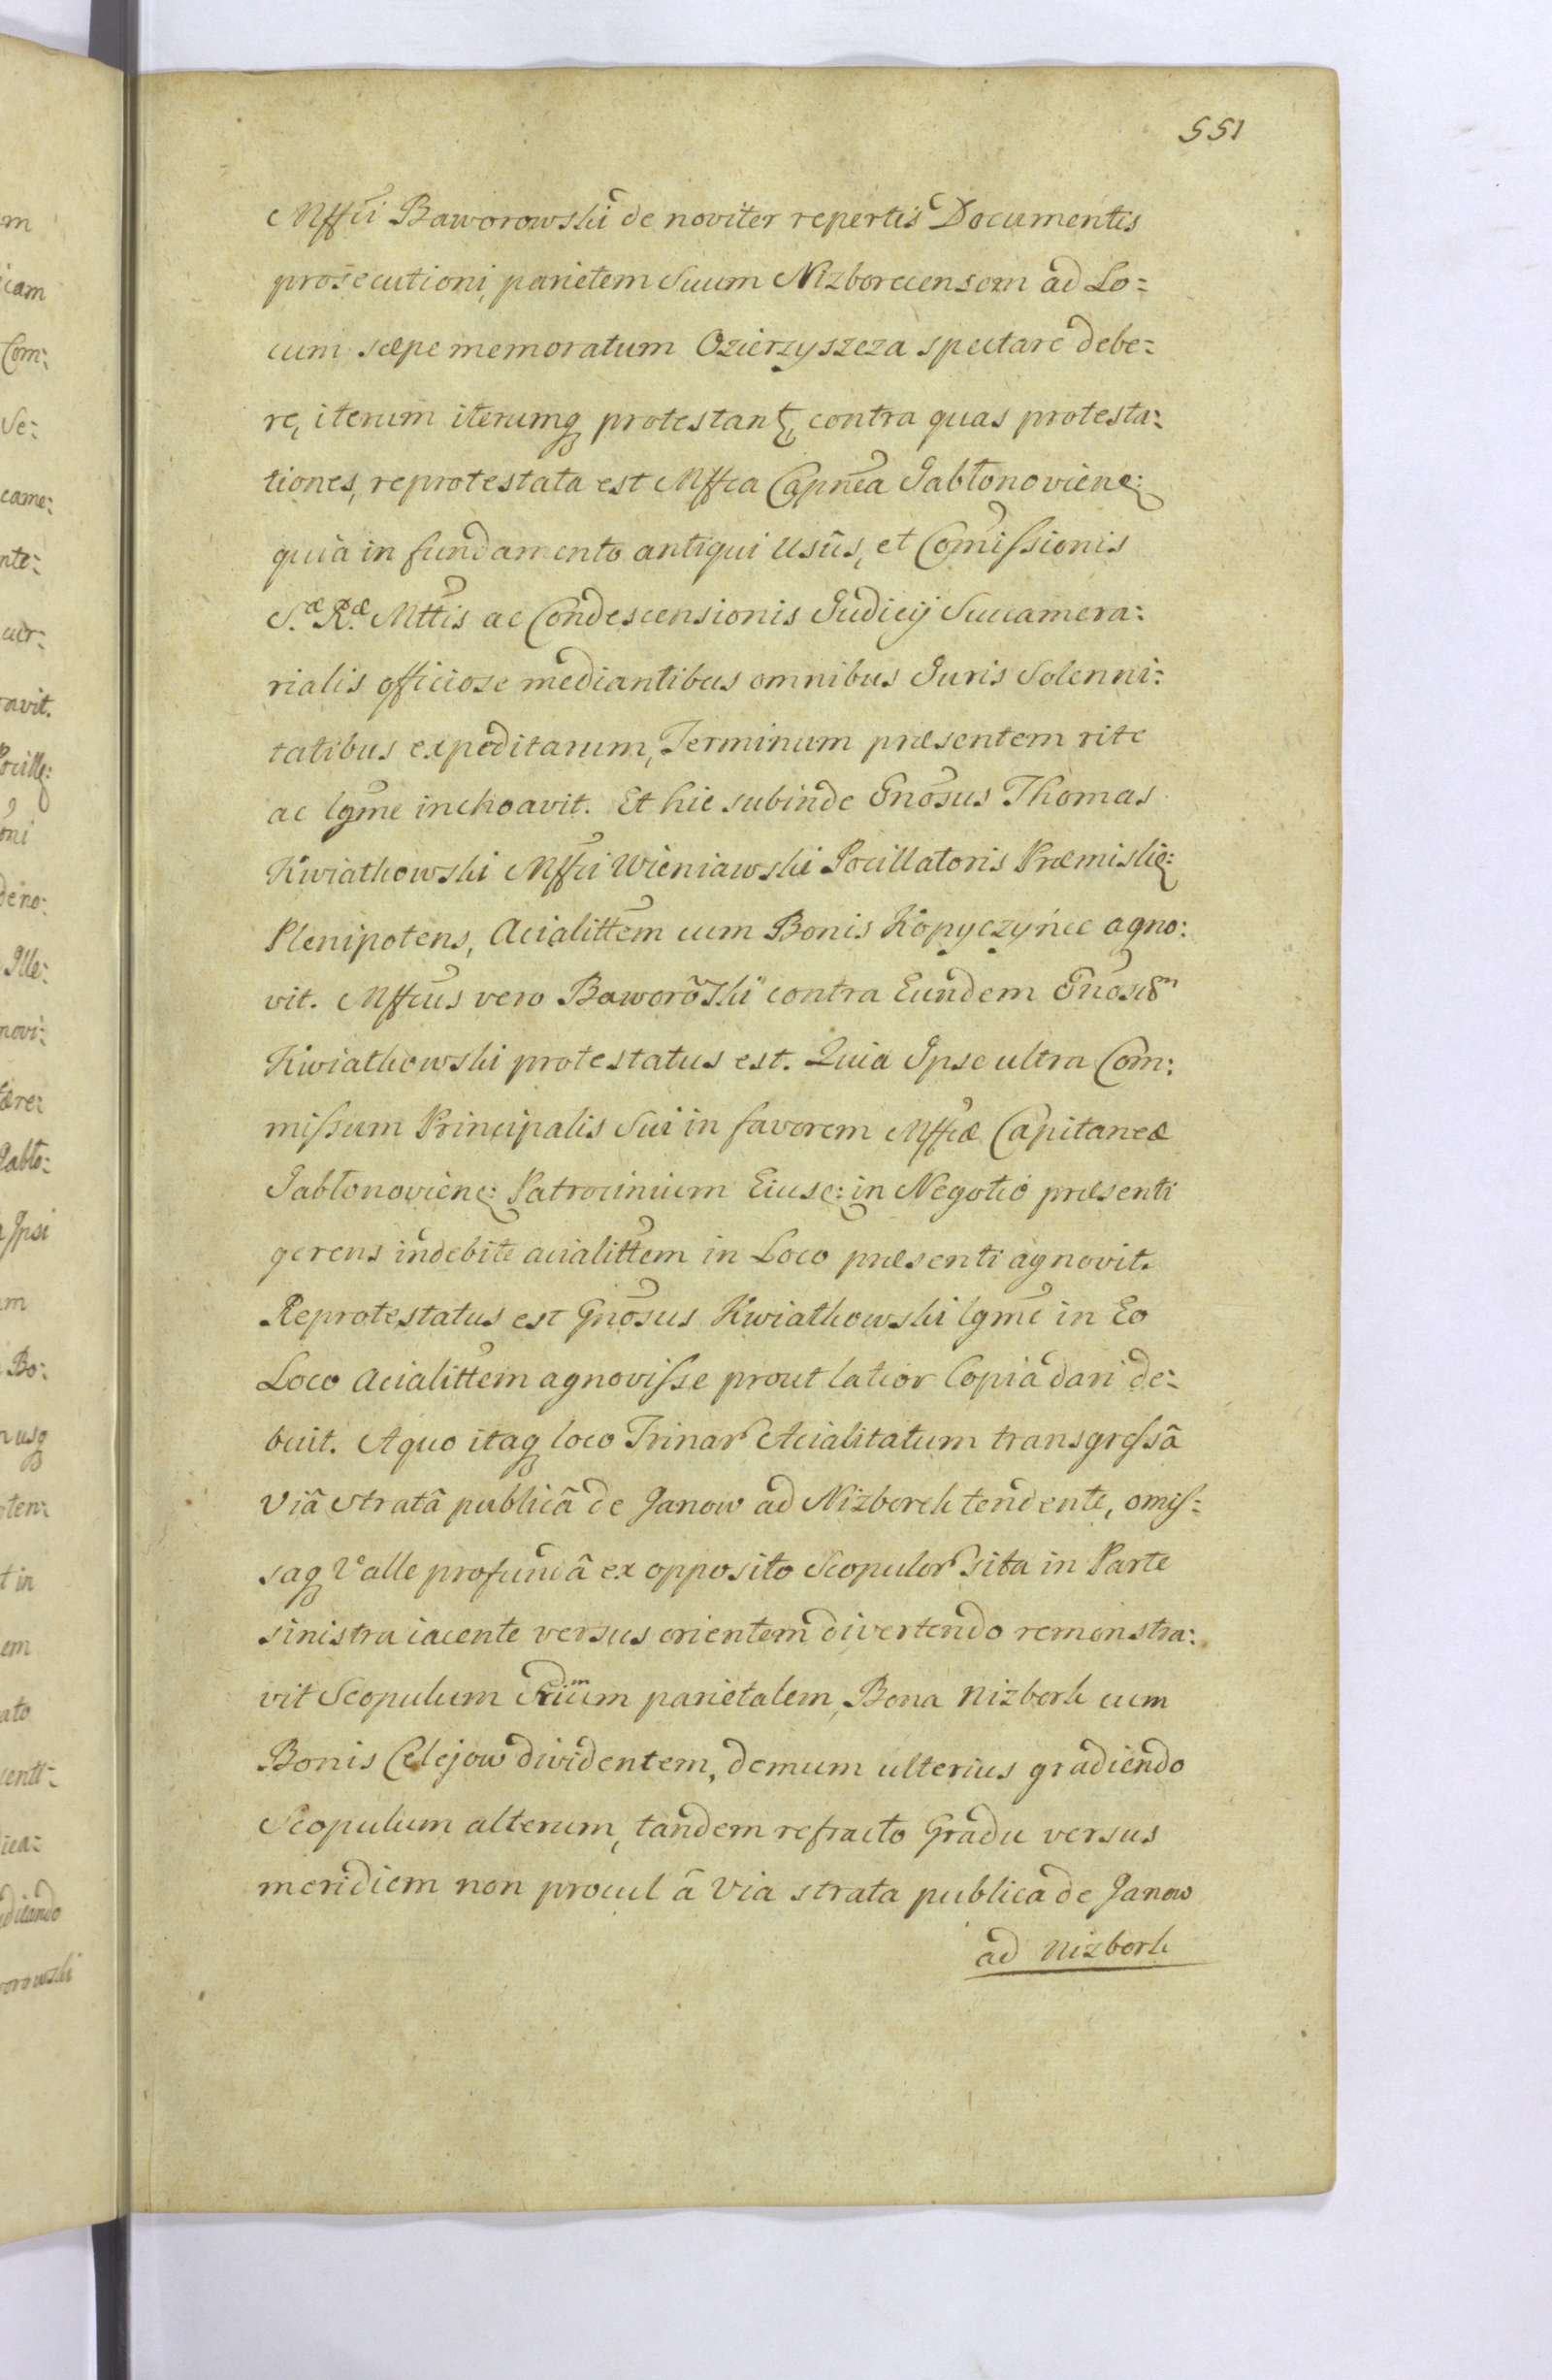 551
Mffci Baworowski de noviter repertis Documentis
prosecutioni, parietem Suum Nizborecensem ad Lo=
cum sæpe memoratum Ozierzyszcza spectare debe=
re, iterum iterumq protestant, contra quas protesta:
tiones, reprotestata est Mffca Capnea Jabłonoviene:
quia in fundamento antiqui Usûs, et Comissionis
S.æ R.æ Mttis ac Condescensionis Judicij Succamera:
rialis officiose mediantibus omnibus Juris Solenni:
tatibus expeditarum, Terminum præsentem rite
ac lgme inchoavit. Et hic subinde Gnosus Thomas
Kwiatkowski Mffci Wieniawski Pocillatoris Præmislie:
Plenipotens, Acialittem cum Bonis Kopyczyńce agno:
vit. Mffcus vero Baworoski contra Eundem Gnosum
Kwiatkowski protestatus est. Quia Ipse ultra Com:
missum Principalis Sui in favorem Mffcæ Capitaneæ
Jabłonoviene: Patrocinium Eiusē: in Negotio præsenti
gerens indebite acialittem in Loco præsenti agnovit.
Reprotestatus est Gnosus Kwiatkowski lgme in Eo
Loco Acialittem agnovisse prout latior Copia dari de=
buit. A quo itaq loco Trinar Acialitatum transgressâ
Viâ Stratâ publicâ de Janow ad Nizborek tendente, omis=
saq Valle profundâ ex opposito Scopulor sita in Parte
sinistra iacente versus orientem divertendo remonstra:
vit Scopulum parietalem, Bona Nizbork cum
Bonis Celejow dividentem, demum ulterius gradiendo
Scopulum alterum, tandem refracto Gradu versus
meridiem non procul â Via strata publica de Janow
ad Nizbork